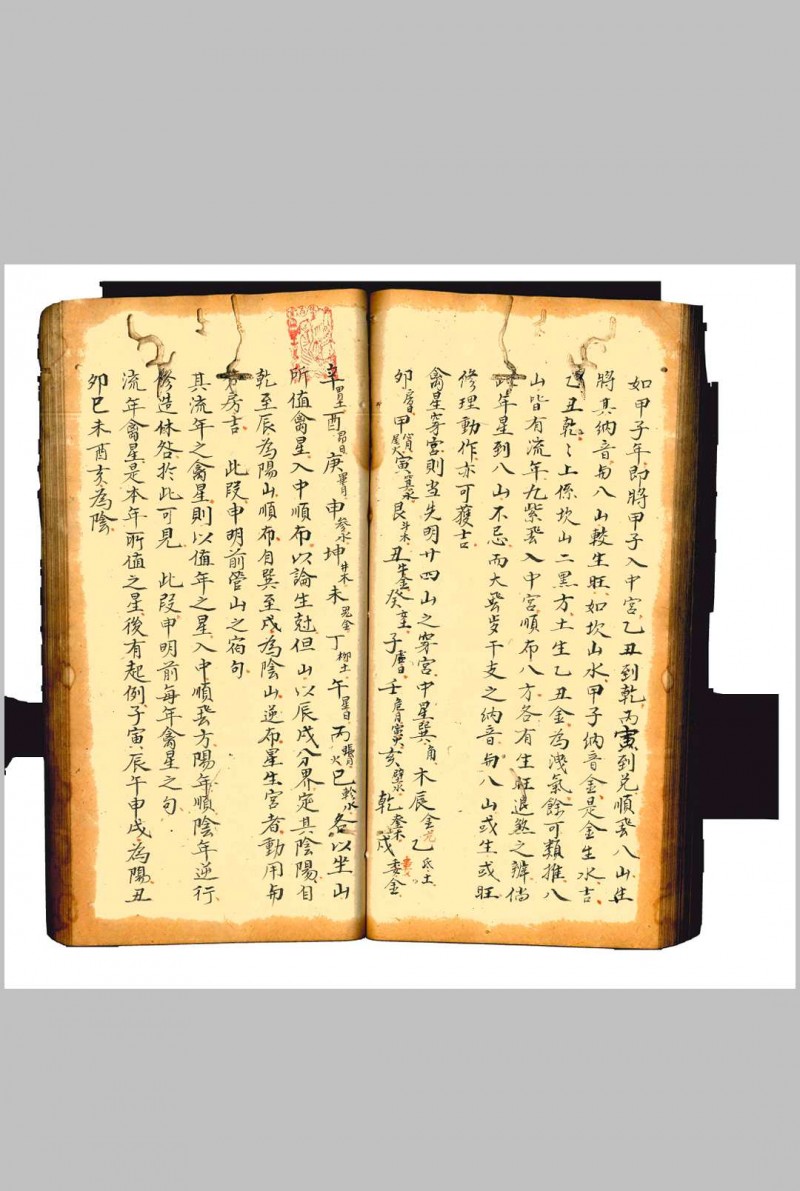 如甲子年即將甲子入中宮乙丑到乾丙寅到兌順飛八山生
將其納音與八山較生旺如坎山水甲子納音金是金生水吉
乙丑乾乾上係坎山二黑方土生乙丑金為洩氣餘可類推八
山皆有流年九紫飛入中宮順布八方各有生旺退煞之辨倘
年星到八山不忌而大飛歲干支之納音與八山或生或旺
修理動作亦可獲吉
禽星穿宮則當先明廿四山之穿宮中星巽角木辰金亢乙氐土
卯房日甲尾火寅箕水艮斗木丑牛金癸女土子虛日壬危月亥壁水乾奎木戌婁金
辛胃土酉昴日庚畢月申參水坤井木未鬼金丁柳土午星日丙張月巳軫水各以坐山
所值禽星入中順布以論生尅但山以辰戌分界定其陰陽自
乾至辰為陽山順布自巽至戌為陰山逆布星生宮者動用與
房吉 此段申明前管山之宿句
其流年之禽星則以值年之星入中順飛方陽年順陰年逆行
修造休咎於此可見 此段申明前每年禽星之句
流年禽星是本年所值之星後有起例子寅辰午申戌為陽丑
卯巳未酉亥為陰